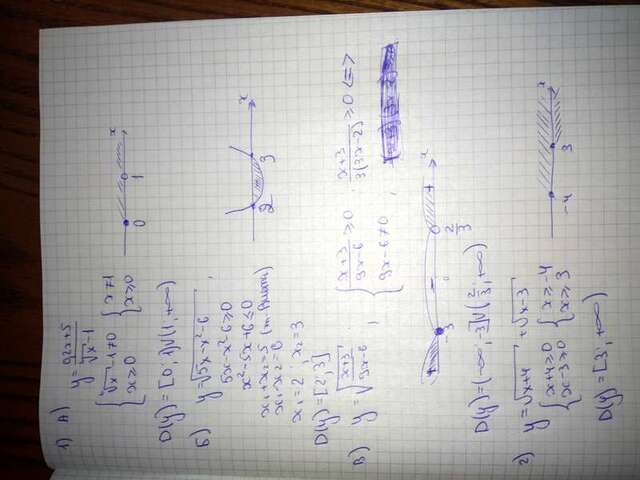 1) А)
y = (92x+5)/(√x - 1)
{ √x - 1 ≠ 0 { x ≠ 1
x ≥ 0 x ≥ 0
0 1 x
D(y) = [0; 1)U(1; +∞)
Б) y = √(5x-x²-6),
5x-x²-6 ≥ 0
x²-5x+6 ≤ 0
x₁+x₂=5 (т. Виета)
x₁·x₂=6
x₁=2, x₂=3
2 - 3 x
D(y)=[2;3]
В) y = √((x+3)/(9x-6)); { (x+3)/(9x-6) ≥ 0 (x+3)/(3(3x-2)) ≥ 0 <=>
9x-6 ≠ 0,
+ -3 - 0 2/3 + x
D(y)=(-∞; -3]U(2/3; +∞)
г) y = √(x+4) + √(x-3)
{ x+4 ≥ 0 { x ≥ -4
x-3 ≥ 0 x ≥ 3
-4 3 x
D(y) = [3; +∞)